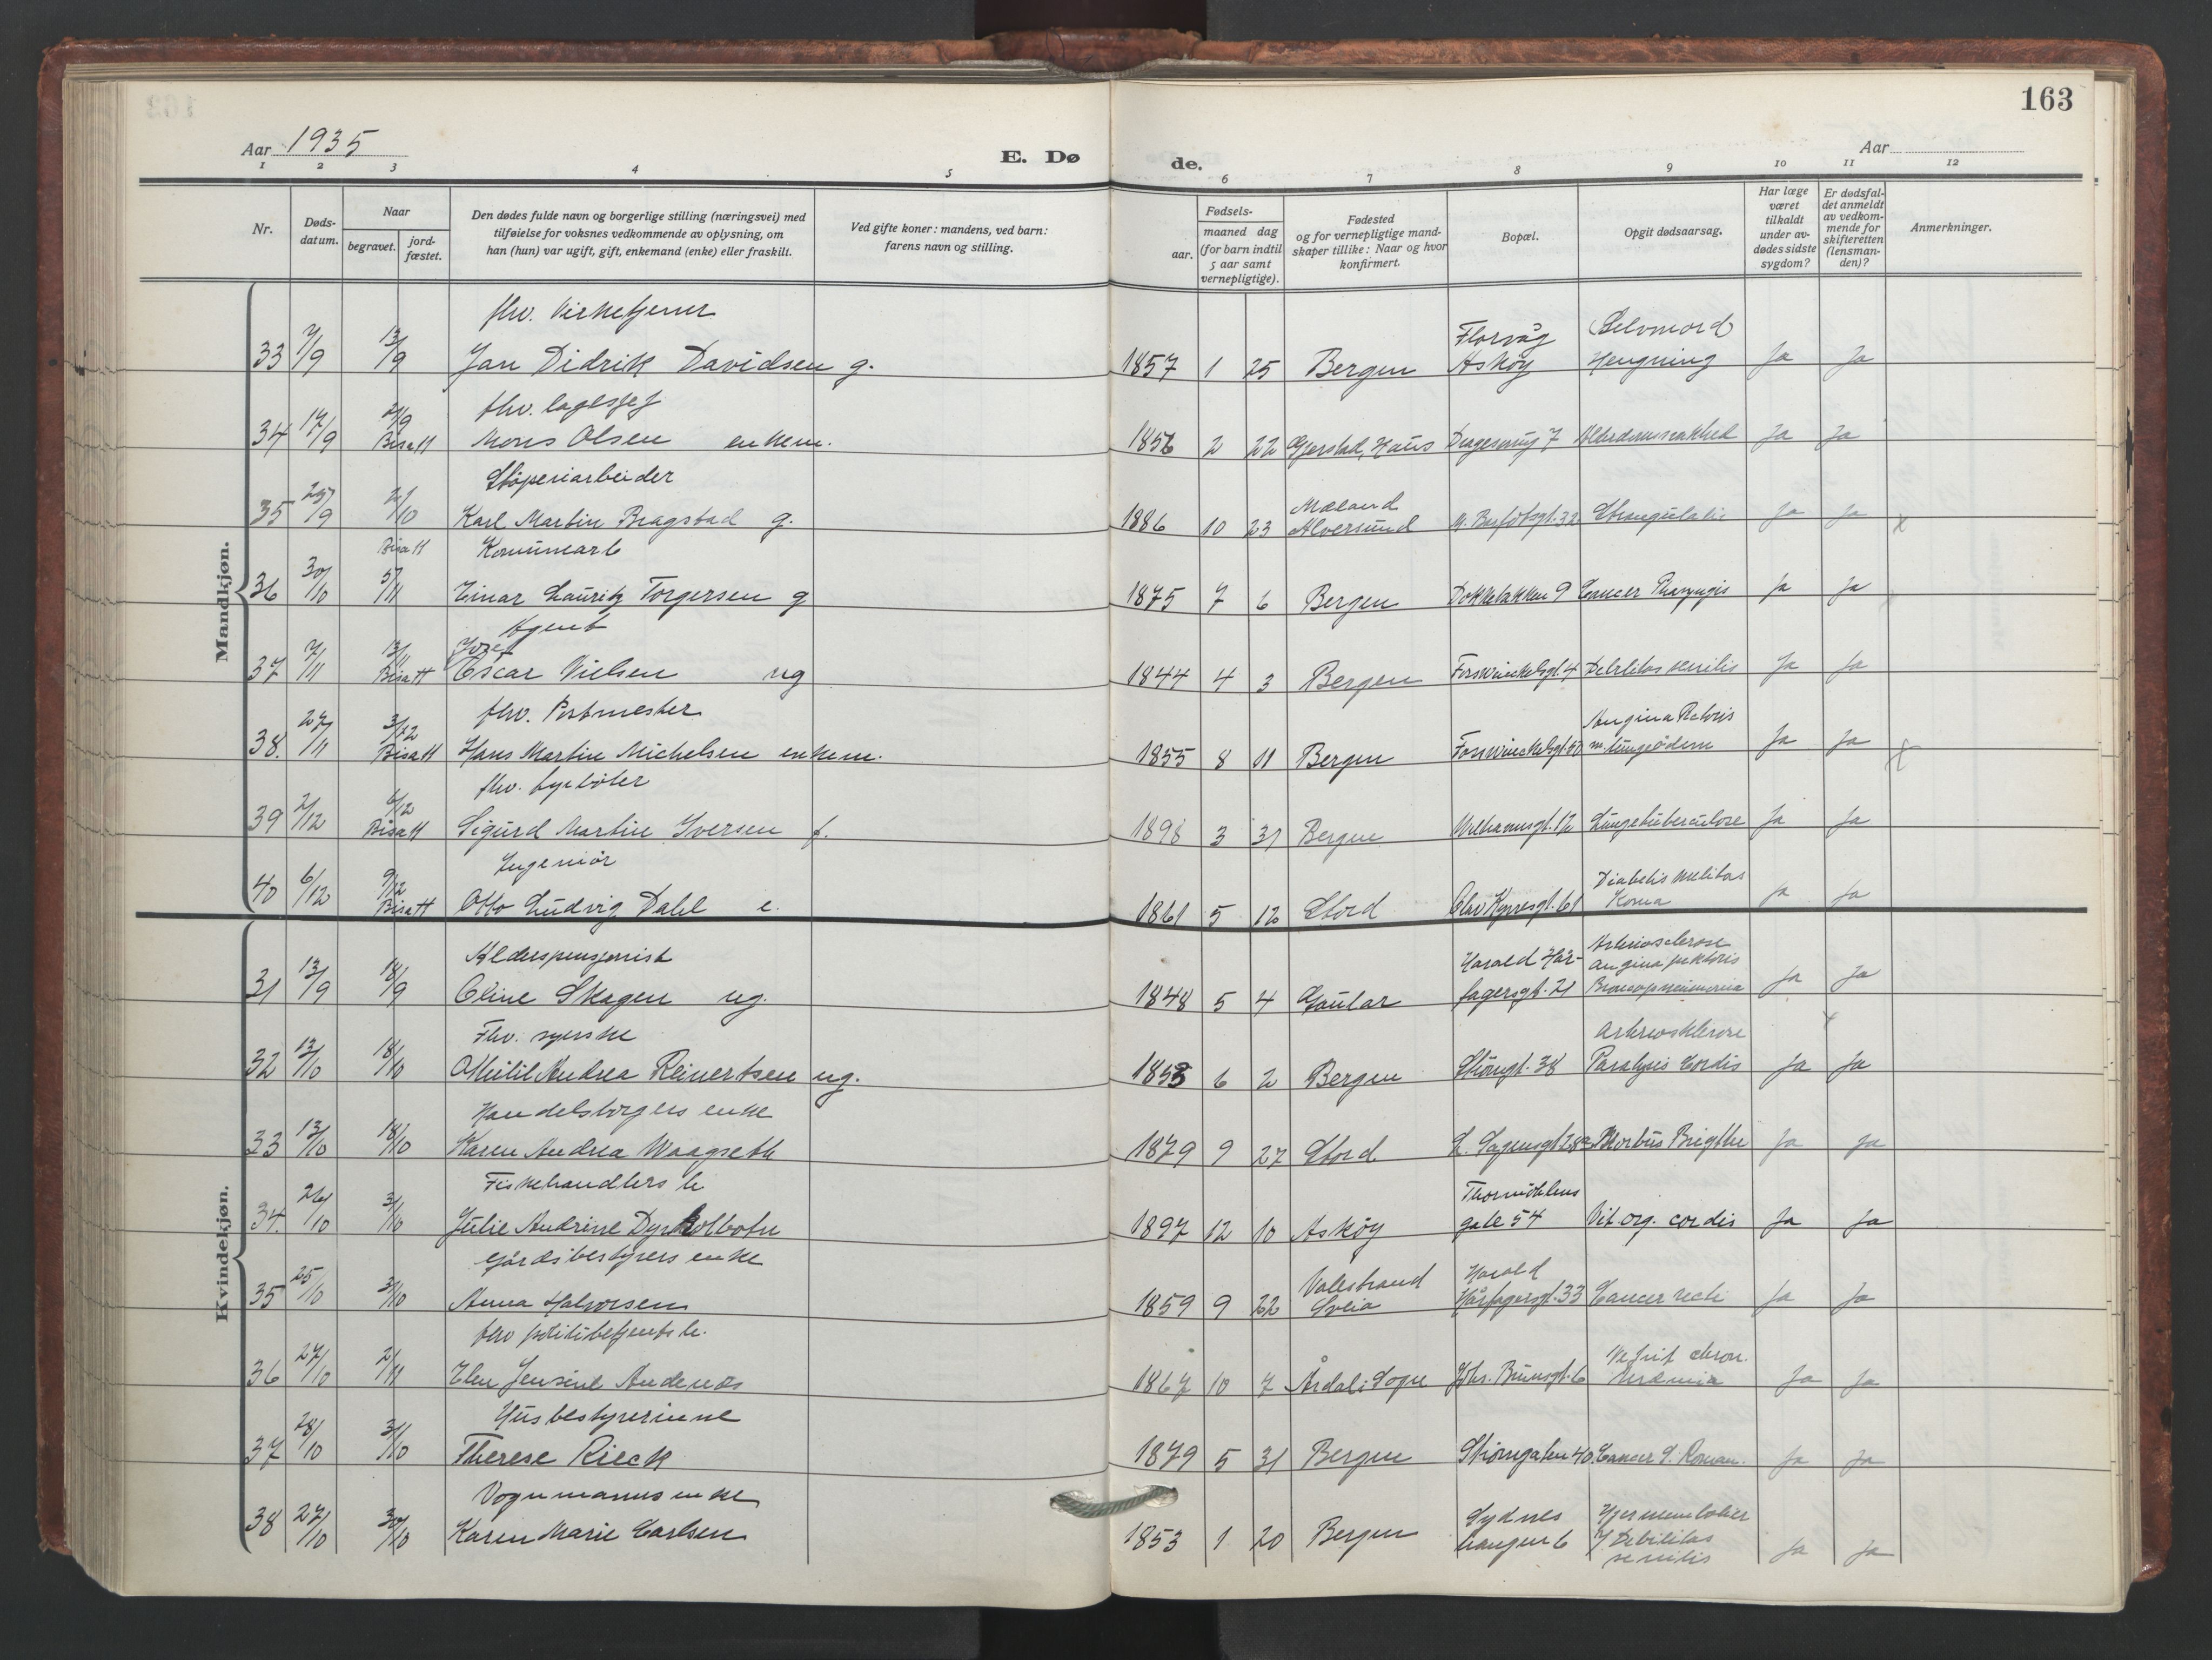 163
Aar 1935
E. Dø
de.
Aar
1 2 3 4 5 6 7 8 9 10 11 12
Nr.
Døds-
datum.
Naar
begravet.
jord-
fæstet.
Den dødes fulde navn og borgerlige stilling (næringsvei) med
tilføielse for voksnes vedkommende av oplysning, om
han (hun) var ugift, gift, enkemand (enke) eller fraskilt.
Ved gifte koner: mandens, ved barn:
farens navn og stilling.
Fødsels-
aar.
maaned dag
(for barn indtil
5 aar samt
vernepligtige).
Fødested
og for vernepligtige mand-
skaper tillike: Naar og hvor
konfirmert.
Bopæl.
Opgit dødsaarsag.
Har læge
været
tilkaldt
under av-
dødes sidste
sygdom?
Er dødsfal-
det anmeldt
av vedkom-
mende for
skifteretten
(lensman-
den)?
Anmerkninger.
Mandkjøn.
fhv.
Florvåg Selvmord
33 7/9 13/9 Jan Didrik Davidsen g. 1857 1 25 Bergen Askøy Hengning Ja Ja
fhv.
34 17/9 21/9 Bisatt Mons Olsen enkem. 1856 2 22 Gjerstad, Haus 7 Ja Ja
Støperiarbeider
Mæland
35 9 10 Karl Martin Bragstad g. 1886 10 23 Alversund 32 Strangulatio Ja Ja x
Bisatt
36 30/10 5/11 Einar Lauritz Torgersen g 1875 7 6 Bergen Dokkebakken 9 Cancer Ja Ja
Agent
37 7/11 13/11 Bisatt Oscar Nielsen ug 1844 4 3 Bergen Fosswinckelsgt. 4 Debilitas senilis Ja Ja
fhv. Postmester
Angina
38. 27/11 3/12 Bisatt Hans Martin Michelsen enkem. 1855 8 11 Bergen Fosswinckelsgt. m. lungeødem Ja Ja x
fhv.
39 2/12 6/12 Bisatt Sigurd Martin Iversen f. 1898 3 31 Bergen 12 Lungetuberculose Ja Ja
Ingeniør
Diabetis
40 6/12 9/12 Bisatt Otto Ludvig Dahl e. 1861 5 12 Stord Olav Kyrresgt. 61 Koma Ja Ja
Kvindekjøn.
Alderspensjonist
Harald Hår- Arteriosclerose
angina pektoris
31 13/9 18/9 Oline Skagen ug. 1848 5 4 Gaular fagersgt. 21 Ja Ja
Fhv. syerske
Arteriosklerose
32 13/10 18/10 Andrea Reinertsen ug. 1853 6 2 Bergen Strømgt. 38 Paralysis Cordis Ja Ja
Handelsborgers enke
33 13/10 18/10 Karen Andrea Waagseth 1879 9 27 Stord L. Sagensgt. Morbus Ja Ja
Fiskehandlers
Thormøhlens
34. 26/10 31/10 Julie Andrine Dyrkolbotn 1897 12 10 Askøy gate 54 Vit. org. cordis Ja Ja
Gårdsbestyrers enke
Valestrand Harald
35 25/10 31/10 Anna Halvorsen 1859 9 22 Sveio Hårfagersgt. 33 Cancer recti Ja Ja
fhv politibetjents
Nefrit chron.
36 27/10 2/11 Elen Jensine Andenæs 1867 10 7 Årdal i Sogn Johs. Brunsgt. 6 Uræmia Ja Ja
Husbestyrerinne
37 28/10 31/10 Therese Rieck 1879 5 31 Bergen Strømgaten 40 Cancer Ja Ja
Vognmanns enke
Sydnes
38 27/10 30/10 Karen Marie Carlsen 1853 1 20 Bergen haugen 6 Debilitas Ja Ja
senilis